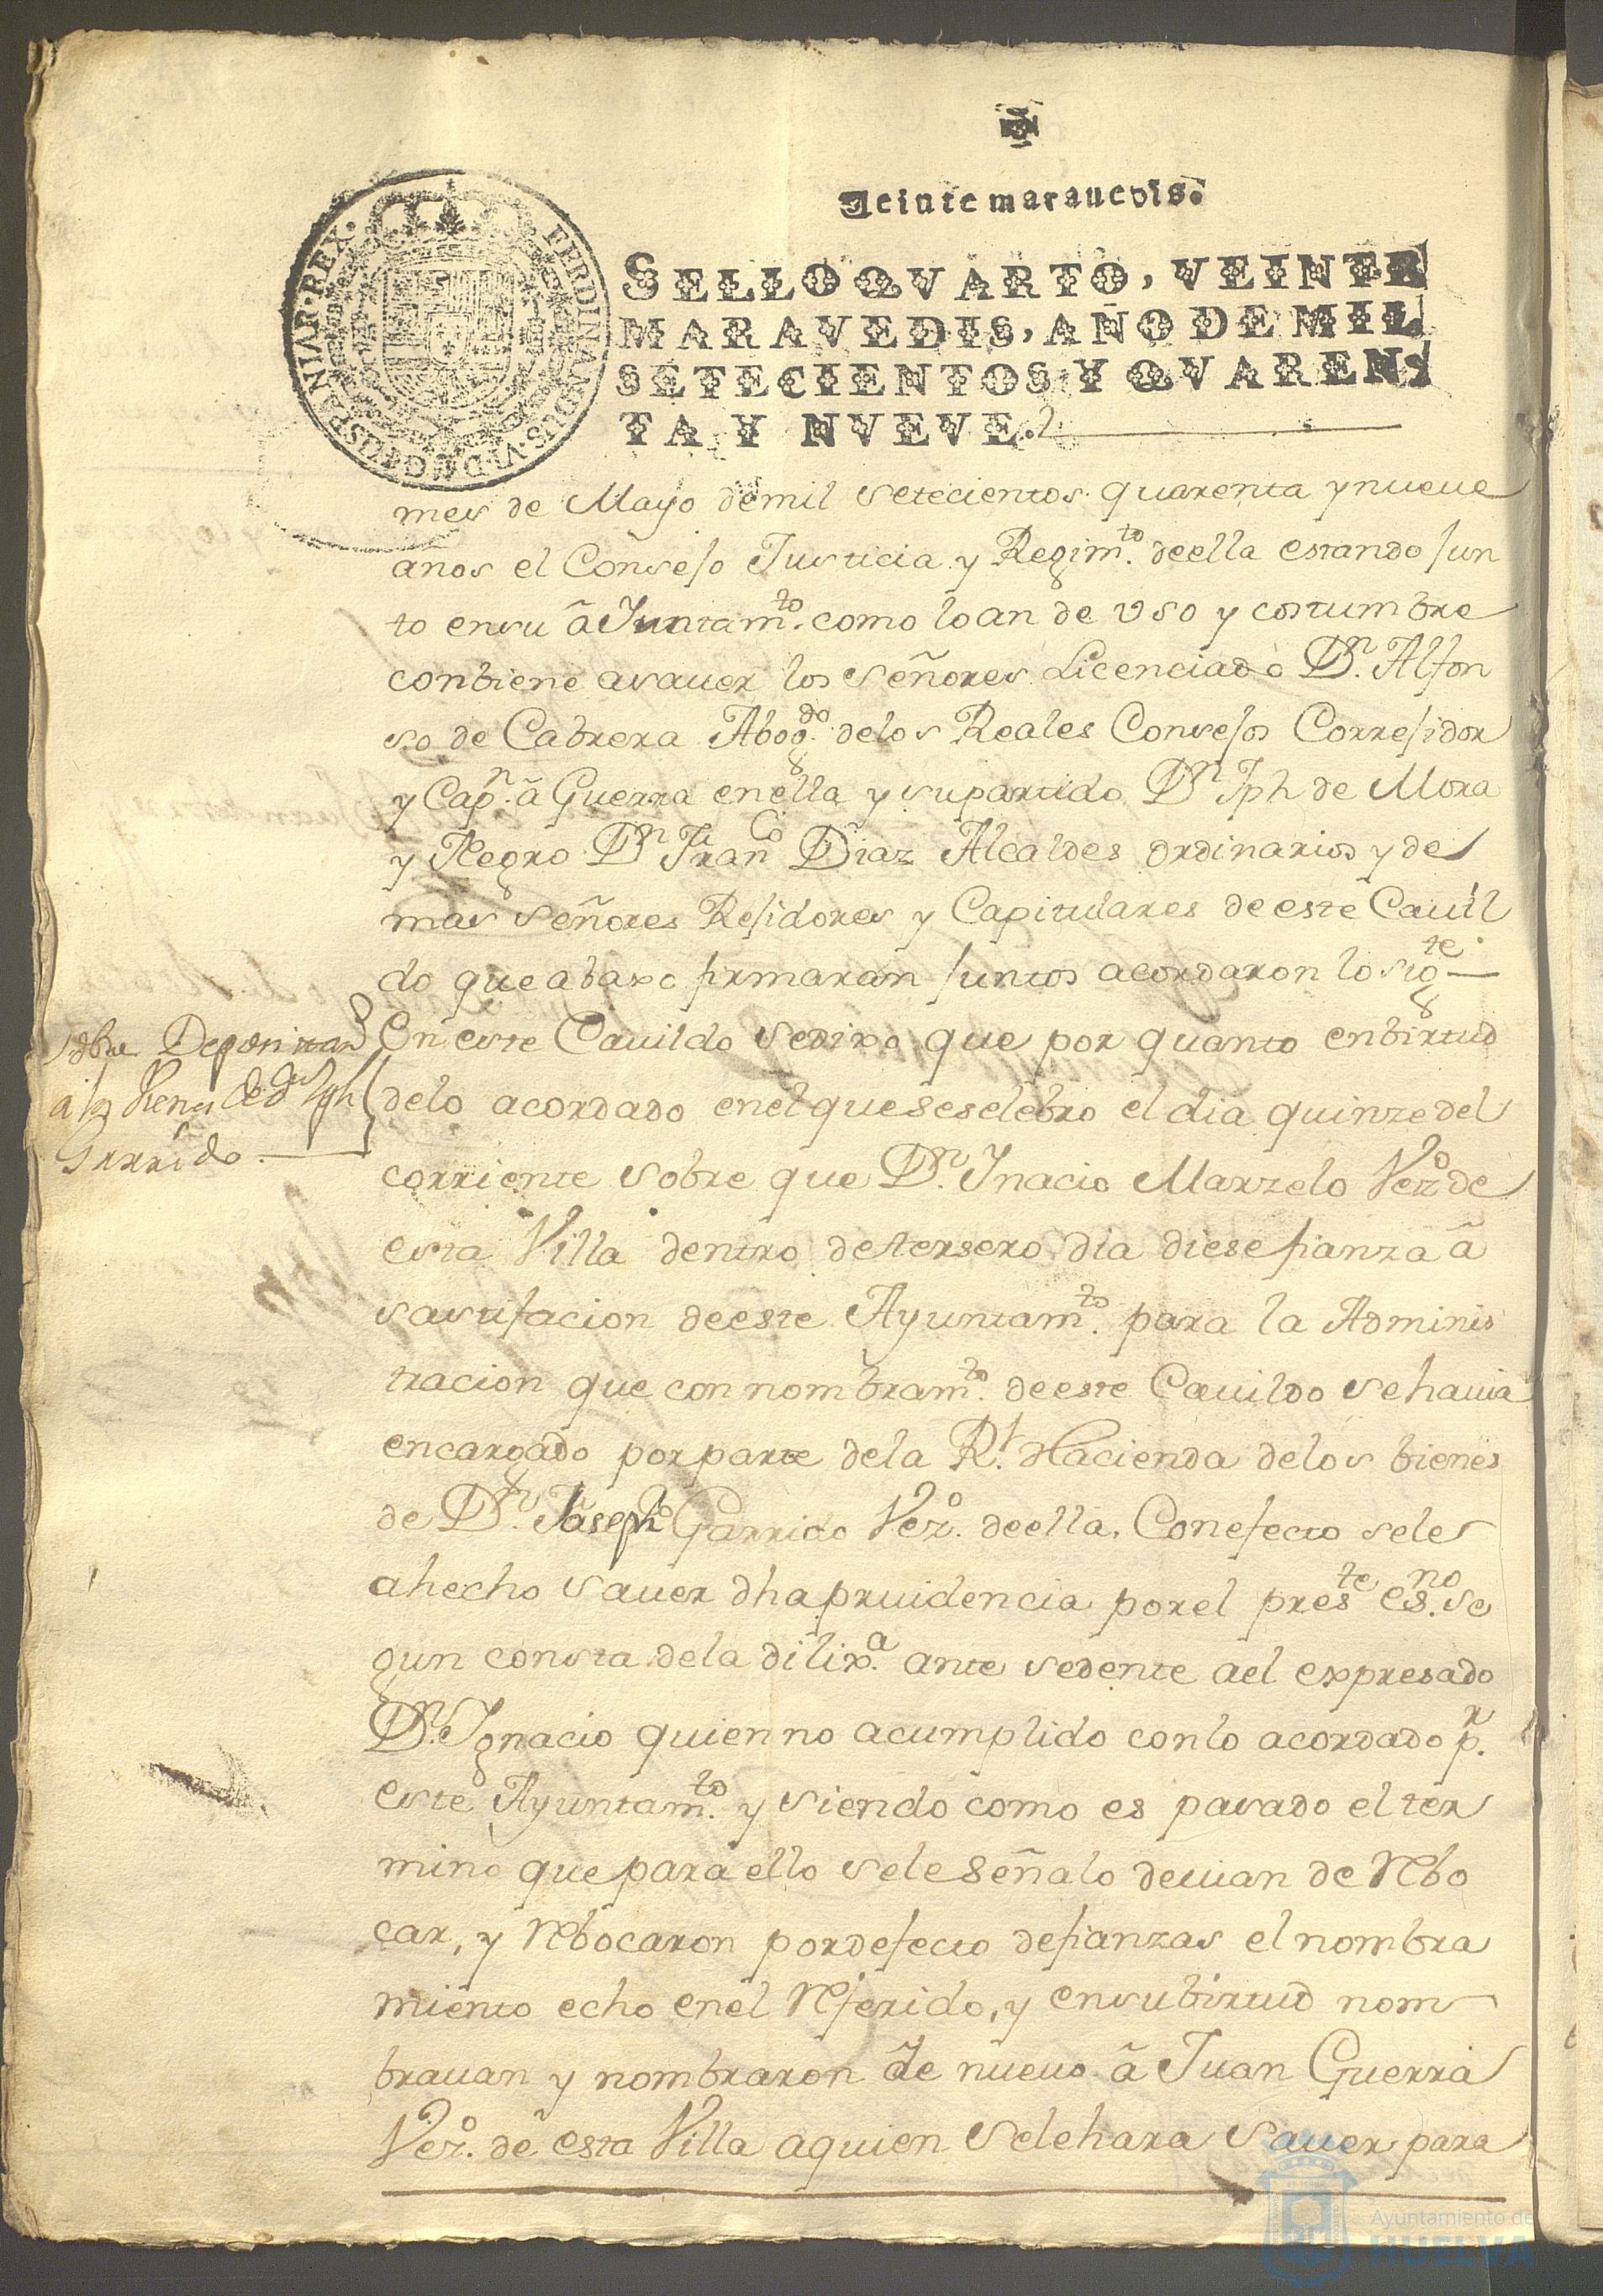 Veinte marauedis.
SELLO QVARTO, VEINTE
MARAVEDIS, AÑO DE MIL
SETECIENTOS Y QVAREN-
TA Y NVEVE.
FERDINANDUS·VI·D·G·HISPANIAR·REX·
mes de Mayo de mil setecientos quarenta y nueue
anos el Consejo Justicia y Regim.to de ella estando jun
to en su ã Juntam.to como lo an de uso y costumbre
conbiene asauer los Señores Licenciado D.n Alfon
so de Cabrera Abog.do de los Reales Consejos Correjidor
y Cap.n â Guerra en ella y su partido D.n Jph de Mora
y Negro D.n Fran.co Diaz Alcaldes ordinarios y de
mas Señores Rejidores y Capitulares de este Cauil
do que abaxo firmaran juntos acordaron lo sig.te
Sobre Depositar
a los vienes de D.n Jph
Garrido
En este Cauildo se dixo que por quanto en birtud
de lo acordado en el que se selebro el dia quinze del
corriente sobre que D.n Jnacio Marzelo Vez.o de
esta Villa dentro de tersero dia diese fianza â
sastifacion de este Ayuntam.to para la Adminis
tracion que con nombram.to de este Cauildo se hauia
encargado por parte de la R.l Hacienda de los bienes
de D.n Joseph Garrido Vez.o de ella, Con efecto se le
a hecho sauer dha pruidencia por el pres.te es.no se
gun consta de la dilix.a ante sedente a el expresado
D.n Jgnacio quien no a cumplido con lo acordado p.r
este Ayuntam.to y siendo como es pasado el ter
mino que para ello se le señalo deuian de Rebo
car, y Rebocaron por defecto de fianzas el nombra
miento echo en el Referido, y en su birtud nom
brauan y nombraron de nueuo â Juan Guerra
Vez.o de esta Villa a quien se le hara sauer para
Ayuntamiento de
HUELVA